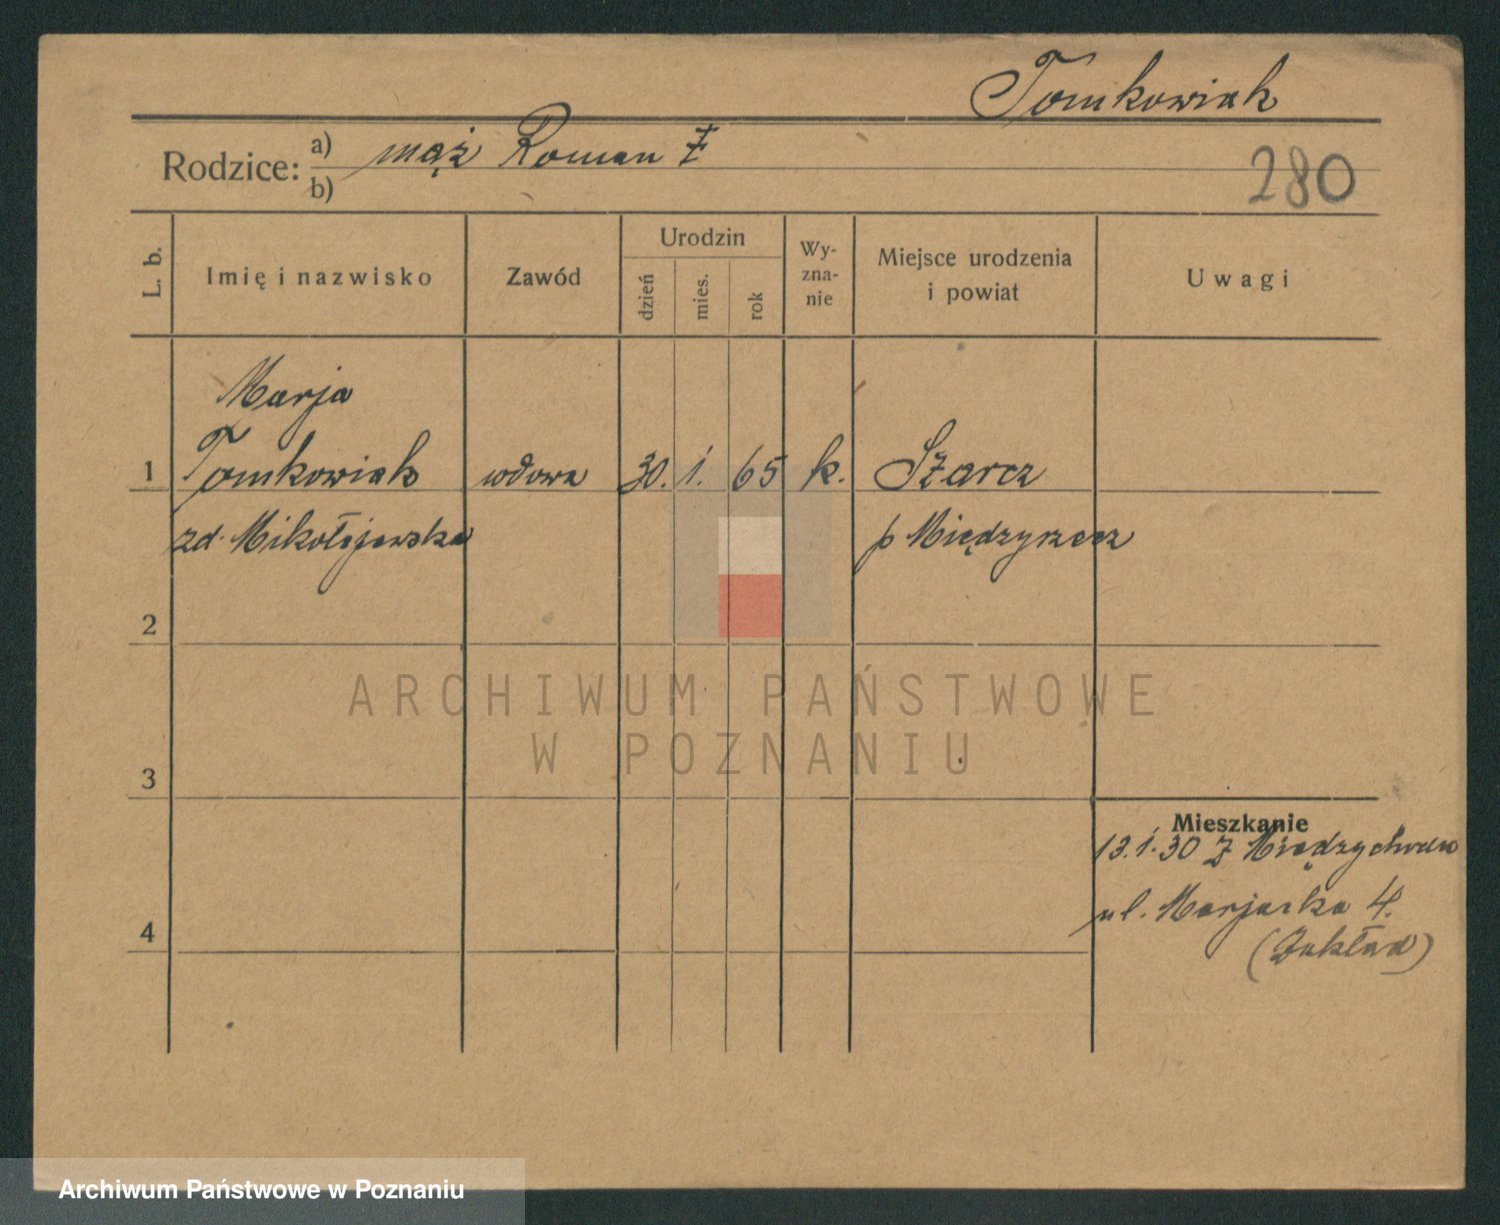 Tomkowiak
Rodzice: a) mąż Roman Ż
b)
280
L. b.
Imię i nazwisko
Zawód
Urodzin
dzień
mies.
rok
Wy-
zna-
nie
Miejsce urodzenia
i powiat
Uwagi
Marja
1 Tomkowiak wdowa 30. 1. 65 k. Szarcz
zd. Mikołajewska p Międzyrzecz
2
ARCHIWUM PAŃSTWOWE
W POZNANIU
3
Mieszkanie
13.1.30 z Międzychodu
ul. Marjacka 4.
4
(Zakład)
Archiwum Państwowe w Poznaniu